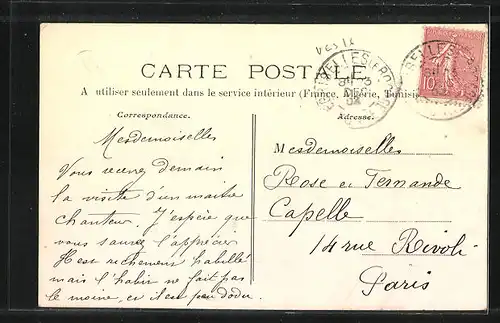 CARTE POSTALE
A utiliser seulement dans le service intérieur (France, Algérie, Tunisie
Correspondance.
Adresse.
Mesdemoiselles
Vous recevrez demain
la visite d'un maître
chanteur. J'espère que
vous saurez l'apprécier
Il est richement habillé
mais l'habit ne fait pas
le moine, et il est peu dodu.
Mesdemoiselles
Rose et Fernande
Capelle
14 rue Rivoli
Paris
10